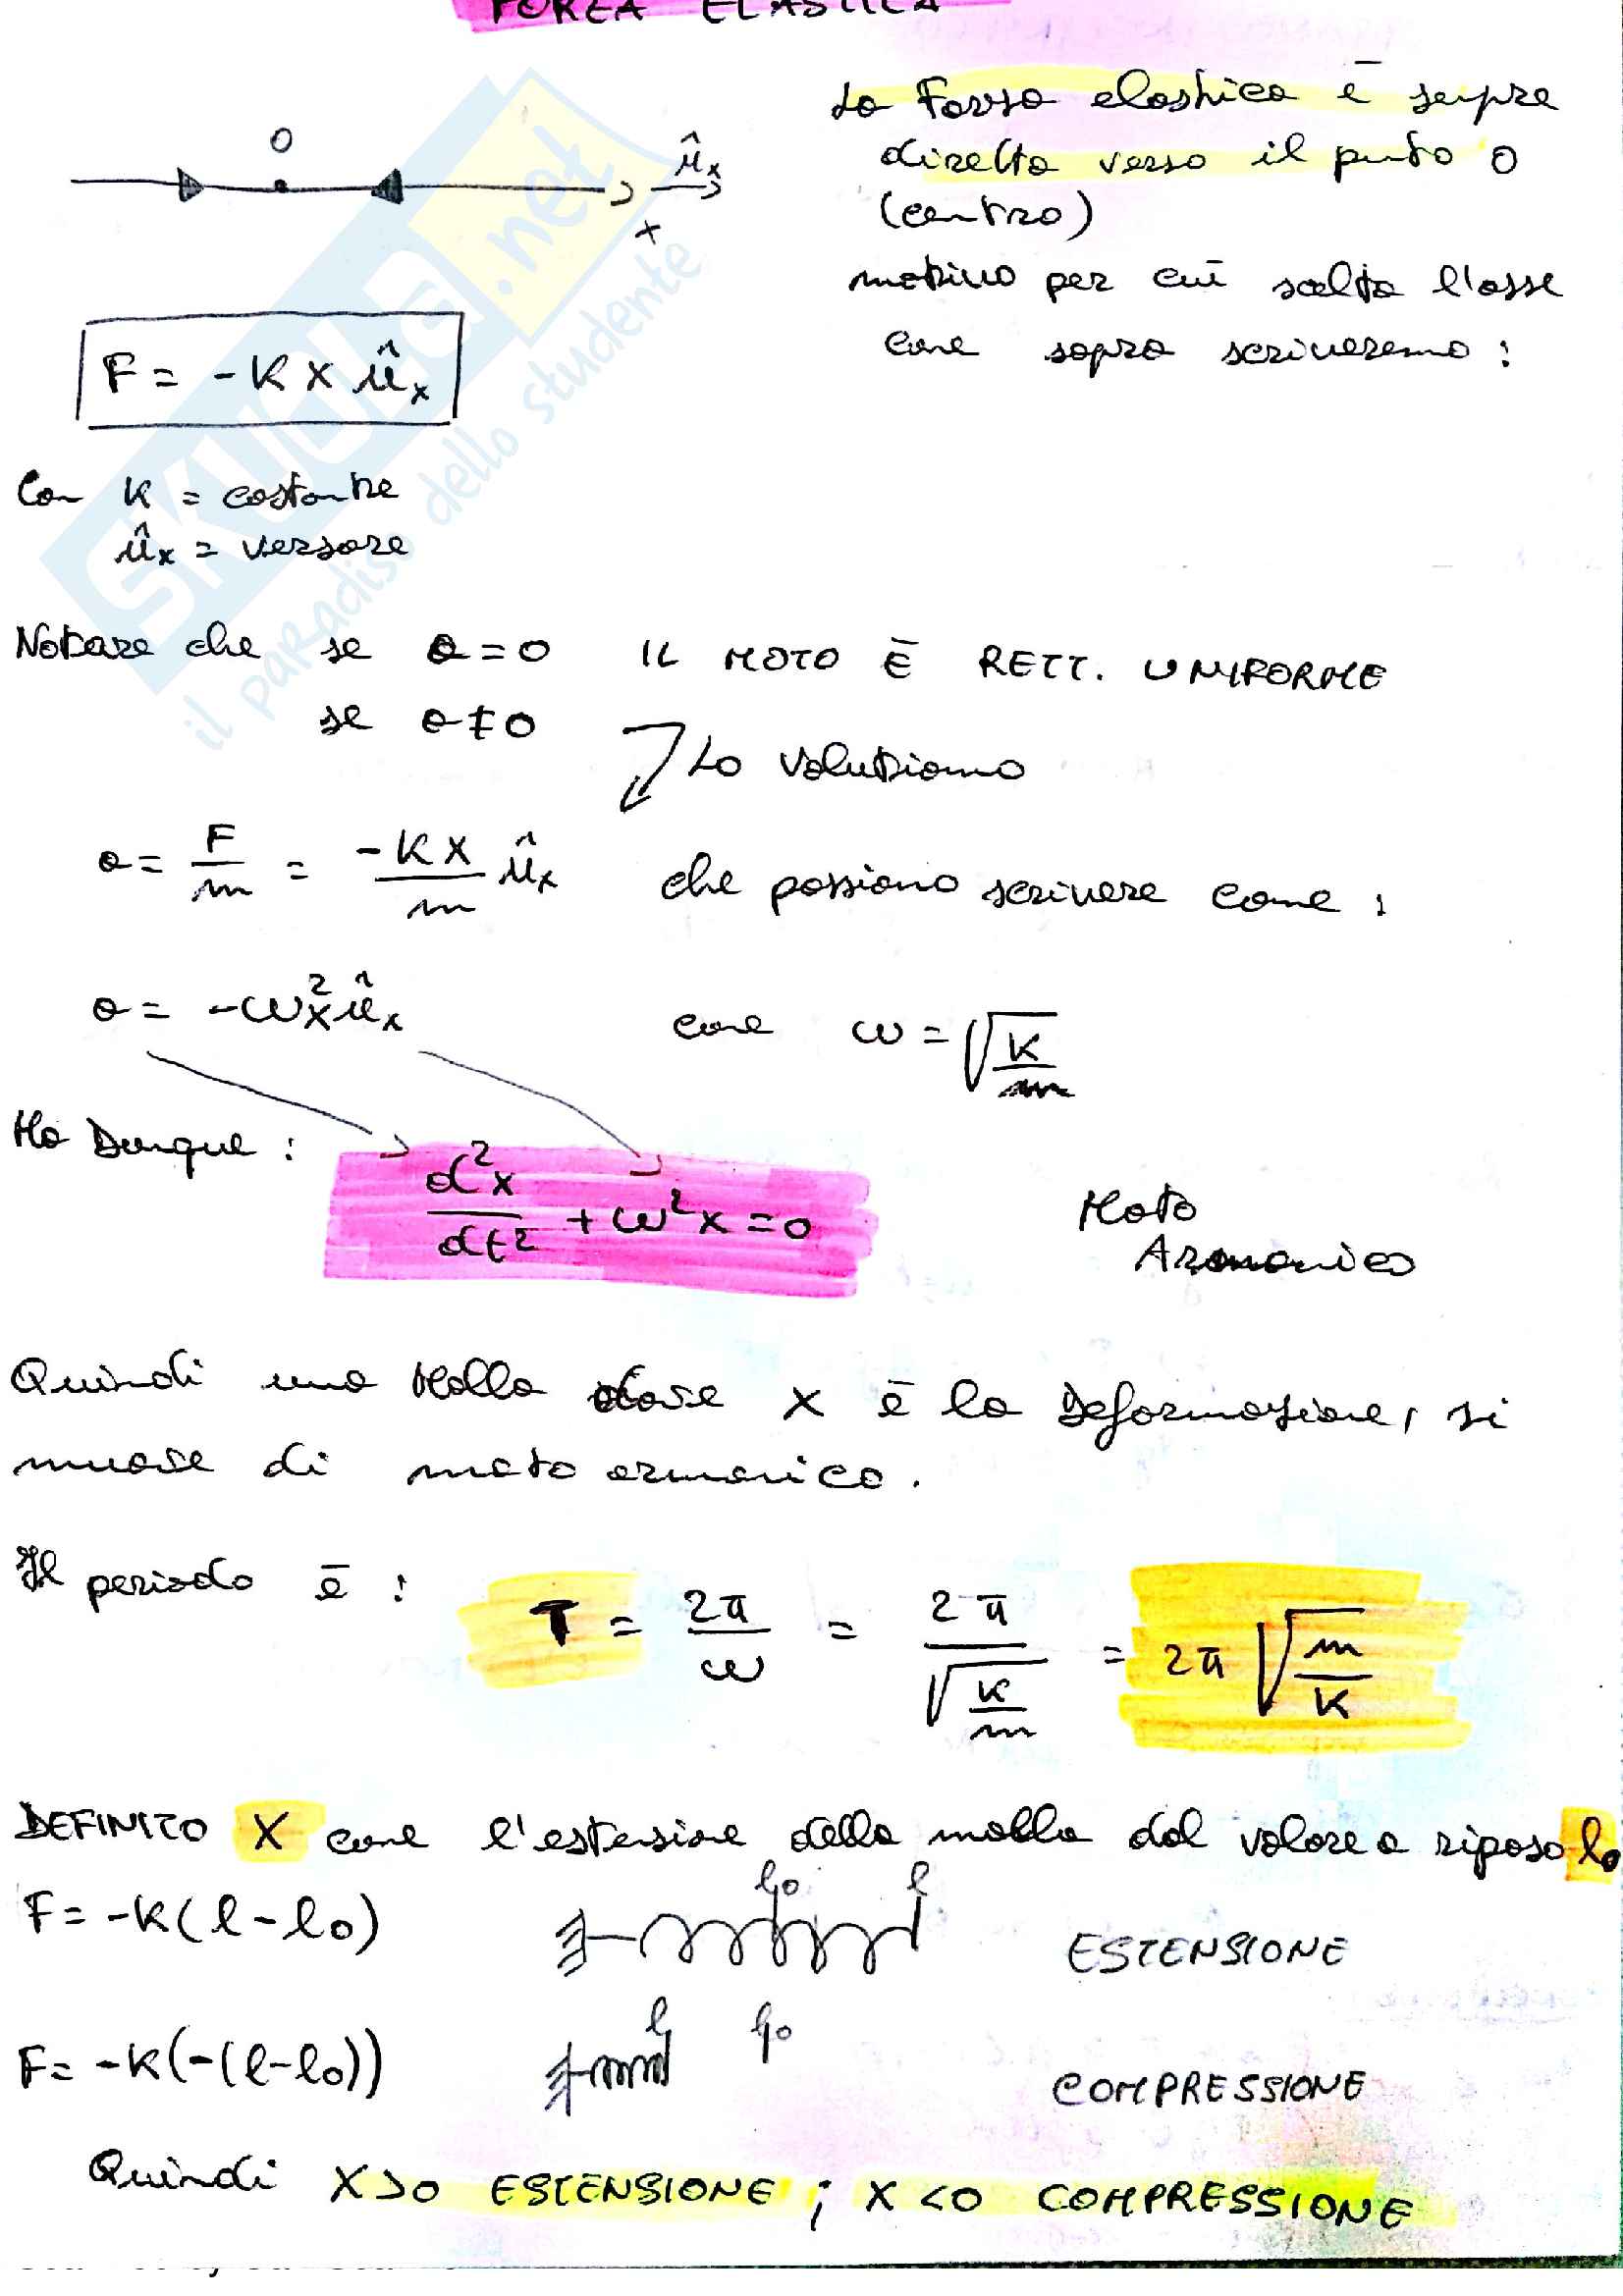 FORZA ELASTICA
La Forza elastica è sempre
diretta verso il punto O
(centro)
motivo per cui scelto l'asse
come sopra scriveremo:
O
ûx
x
F = -K x ûx
Con K = costante
ûx = versore
Notare che se a=0 IL MOTO È RETT. UNIFORME
se a≠0
Lo valutiamo
a = F/m = -Kx/m ûx che possiamo scrivere come:
a = -ω²x ûx come ω = √(K/m)
Ho Dunque:
d²x/dt² + ω²x = 0
Moto
Armonico
Quindi una Molla dove x è la Deformazione, si
muove di moto armonico.
Il periodo è: T = 2π/ω = 2π/√(K/m) = 2π √(m/K)
DEFINITO X come l'estensione della molla dal valore a riposo l₀
F = -K(l - l₀)
l₀ l
ESTENSIONE
F = -K(-(l-l₀))
l l₀
COMPRESSIONE
Quindi X>0 ESTENSIONE ; X<0 COMPRESSIONE
SKUOLA.net
il paradiso dello studente